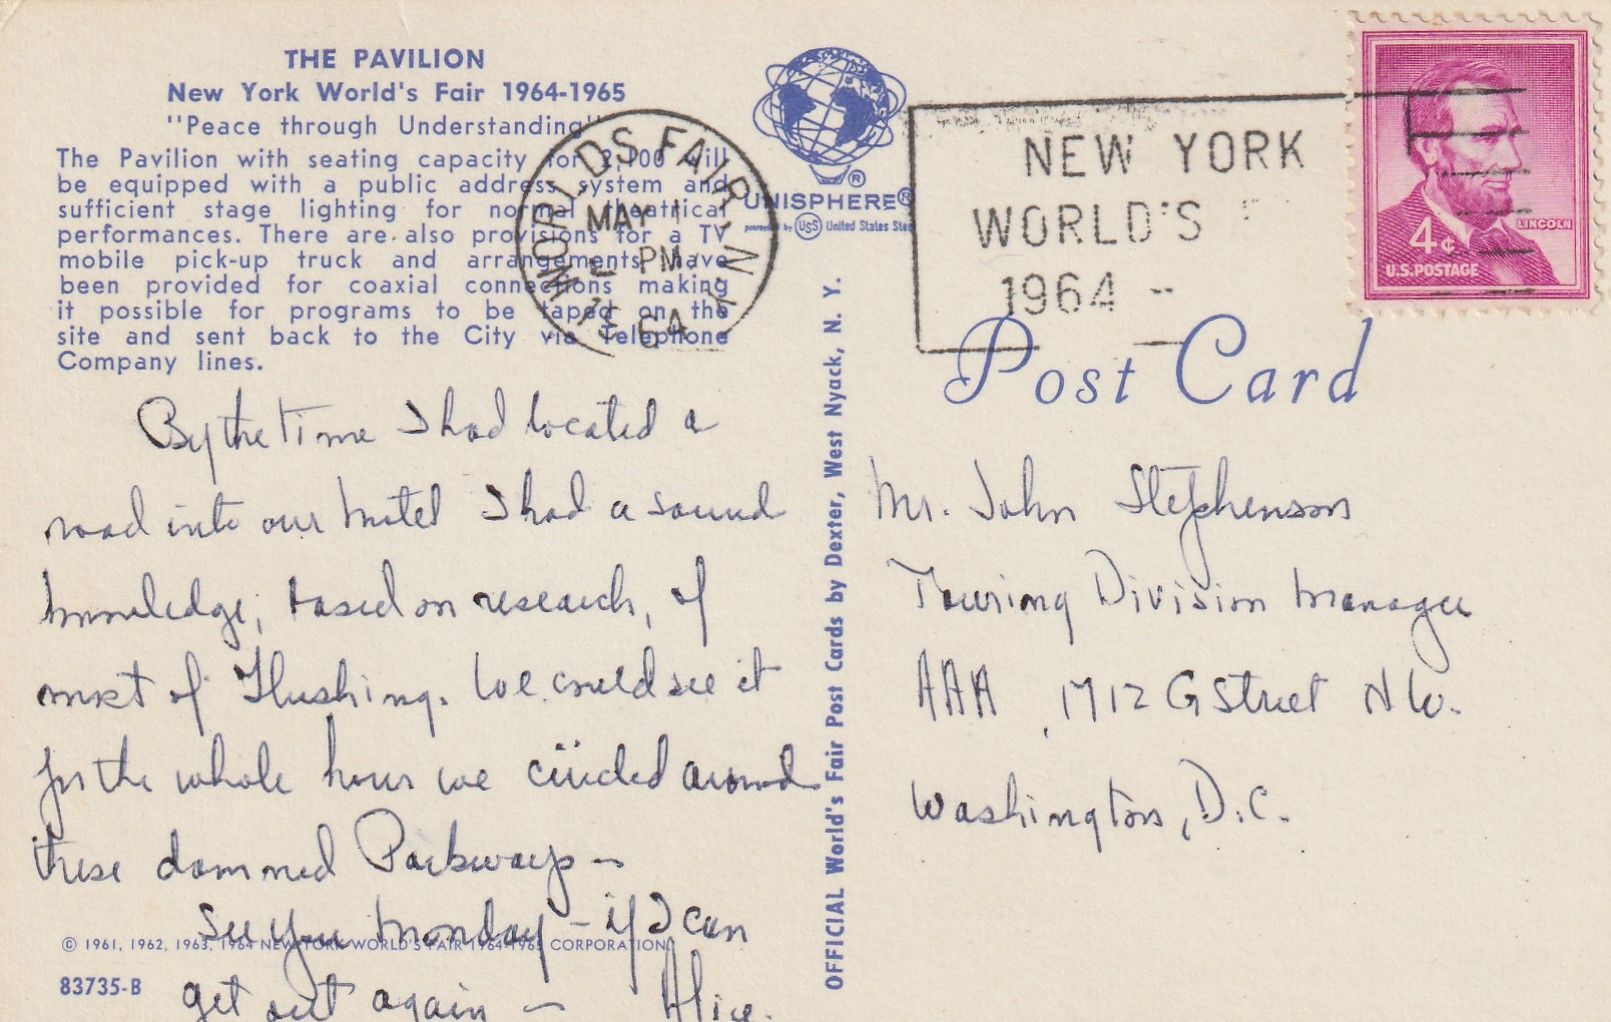 THE PAVILION
New York World's Fair 1964-1965
"Peace through Understanding"
The Pavilion with seating capacity for 2,100 will
be equipped with a public address system and
sufficient stage lighting for normal theatrical
performances. There are also provisions for a TV
mobile pick-up truck and arrangements have
been provided for coaxial connections making
it possible for programs to be taped on the
site and sent back to the City via Telephone
Company lines.
UNISPHERE®
presented by USS United States Steel
WORLDS FAIR N.Y.
MAY 1
PM
1964
NEW YORK
WORLD'S F
1964 -
4¢ LINCOLN
U.S. POSTAGE
Post Card
By the time I had located a
road into our motel I had a sound
knowledge, based on research, of
most of Flushing. We could see it
for the whole hour we circled around
these damned Parkways –
See you Monday – if I can
get out again – Alice.
© 1961, 1962, 1963, 1964 NEW YORK WORLD'S FAIR 1964-1965 CORPORATION
83735-B
OFFICIAL World's Fair Post Cards by Dexter, West Nyack, N. Y.
Mr. John Stephenson
Touring Division Manager
AAA, 1712 G Street N W.
Washington, D.C.